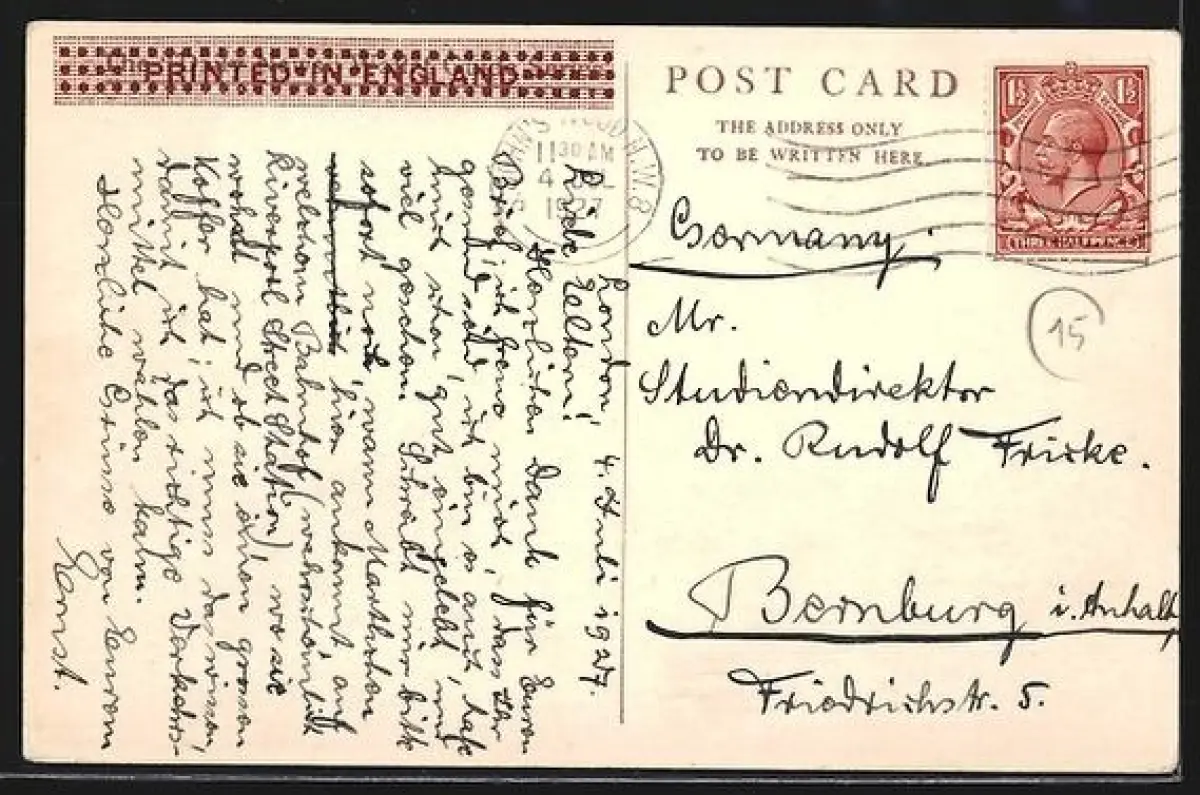 PRINTED·IN·ENGLAND
POST CARD
THE ADDRESS ONLY
TO BE WRITTEN HERE
1½ 1½
THREE HALFPENCE
11 30 AM
4 JUL
1927
N.W.8
15
Germany.
Mr.
Studiendirektor
Dr. Rudolf Fricke.
Bernburg i. Anhalt
Friedrichstr. 5.
London, 4. Juli 1927.
Liebe Eltern!
Herzlichen Dank für Euren
Brief; ich freue mich, dass Ihr
gesund seid, ich bin es auch, habe
mich schon gut eingelebt, und
viel gesehen. Schreibt mir bitte
sofort noch, wann Marthchen
hier ankommt, auf
welchem Bahnhof (wahrscheinlich
Liverpool Street Station), wo sie
wohnt und ob sie einen grossen
Koffer hat; ich muss das wissen,
damit ich das richtige Verkehrs-
mittel wählen kann.
Herzliche Grüsse von Eurem
Ernst.